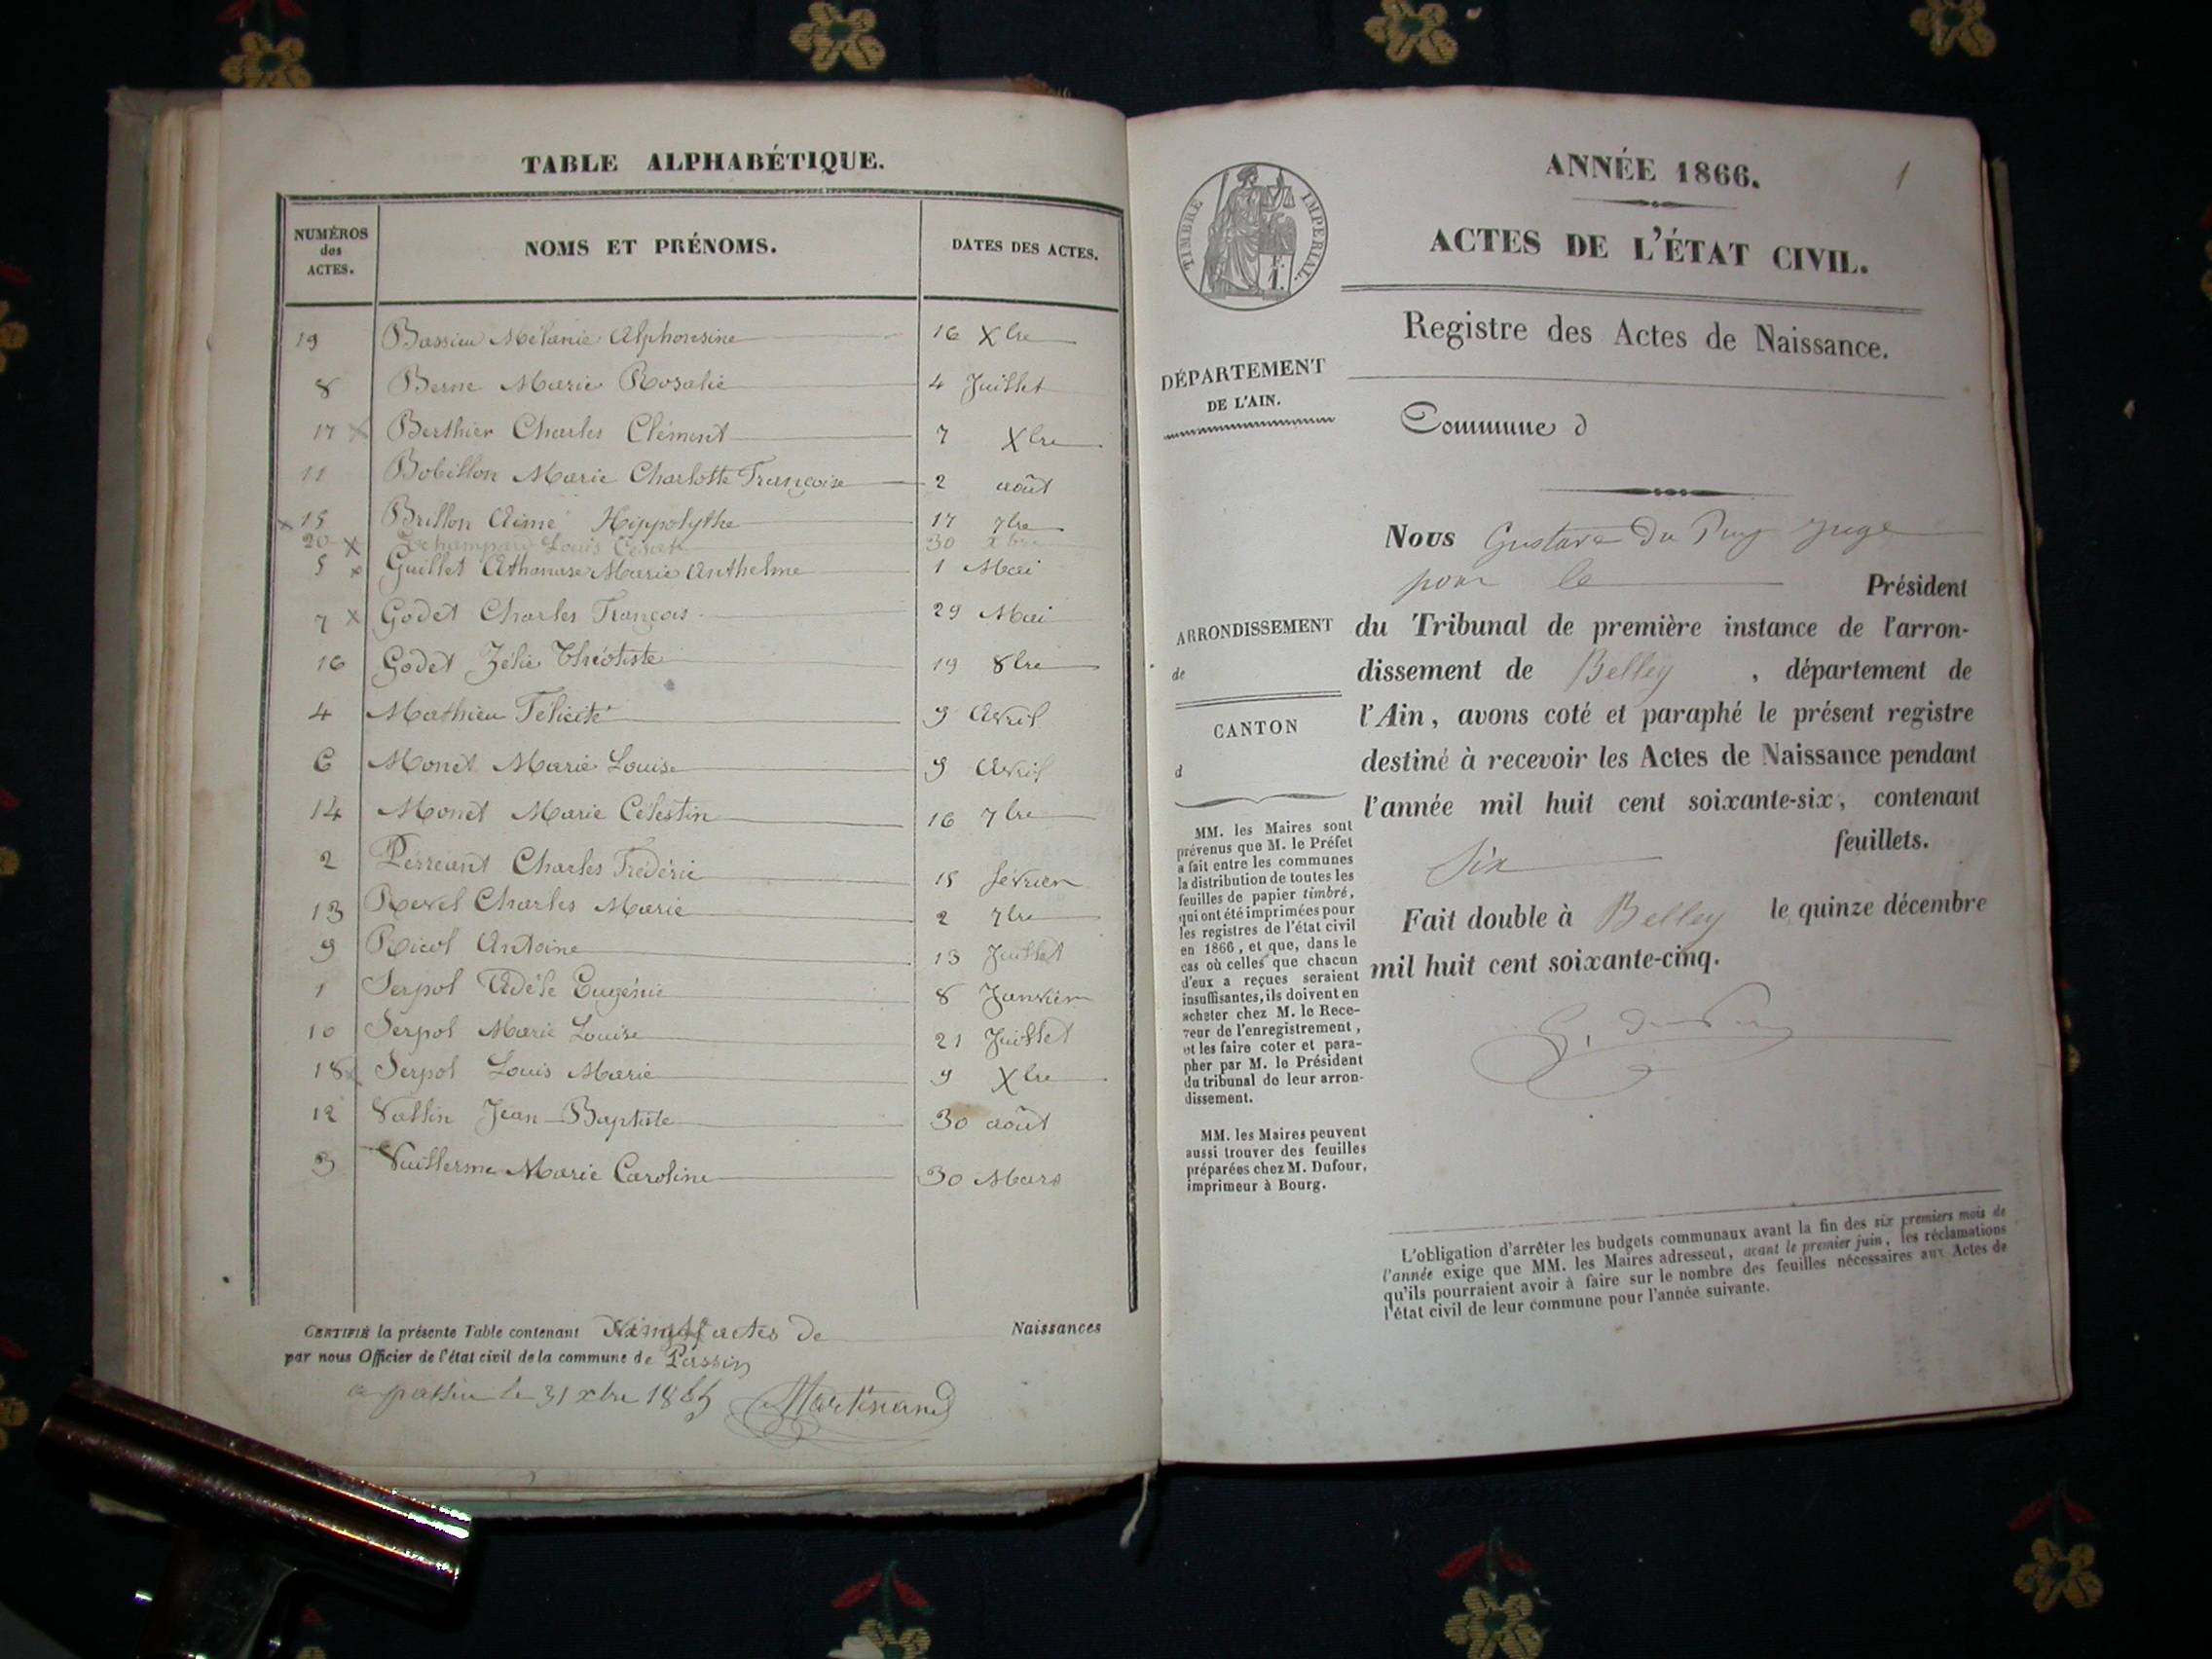 TABLE ALPHABÉTIQUE.
NUMÉROS des ACTES. NOMS ET PRÉNOMS. DATES DES ACTES.
19 Bassieu Mélanie Alphonsine 16 Xbre
8 Berne Marie Rosalie 4 Juillet
17 x Berthier Charles Clément 7 Xbre
11 Bobillon Marie Charlotte Françoise 2 août
x 15 Brillon Aimé Hippolythe 17 7bre
20 x Louis César 30 xbre
5 x Guillet Athanase Marie Anthelme 1 Mai
7 x Godet Charles François 29 Mai
16 Godet Zélie Théotiste 19 8bre
4 Mathieu Félicité 9 Avril
6 Monet Marie Louise 9 Avril
14 Monet Marie Célestin 16 7bre
2 Perreant Charles Frédéric 15 février
13 Revel Charles Marie 2 7bre
9 Ricol Antoine 13 Juillet
1 Serpol Adèle Eugénie 8 Janvier
10 Serpol Marie Louise 21 Juillet
18 Serpol Louis Marie 9 Xbre
12 Vallin Jean-Baptiste 30 août
3 Vuillerme Marie Caroline 30 Mars
CERTIFIÉ la présente Table contenant actes de Naissances
par nous Officier de l'état civil de la commune de Passin
a passin le 31 xbre 1865 Martinand
TIMBRE IMPÉRIAL.
1
ANNÉE 1866.
ACTES DE L'ÉTAT CIVIL.
Registre des Actes de Naissance.
DÉPARTEMENT
DE L'AIN.
Commune d
Nous Gustave Du Puy juge
pour le Président
du Tribunal de première instance de l'arron-
dissement de Belley , département de
l'Ain, avons coté et paraphé le présent registre
destiné à recevoir les Actes de Naissance pendant
l'année mil huit cent soixante-six, contenant
six feuillets.
Fait double à Belley le quinze décembre
mil huit cent soixante-cinq.
ARRONDISSEMENT
de
CANTON
d
MM. les Maires sont
prévenus que M. le Préfet
a fait entre les communes
la distribution de toutes les
feuilles de papier timbré,
qui ont été imprimées pour
les registres de l'état civil
en 1866, et que, dans le
cas où celles que chacun
d'eux a reçues seraient
insuffisantes, ils doivent en
acheter chez M. le Rece-
veur de l'enregistrement,
et les faire coter et para-
pher par M. le Président
du tribunal de leur arron-
dissement.
MM. les Maires peuvent
aussi trouver des feuilles
préparées chez M. Dufour,
imprimeur à Bourg.
L'obligation d'arrêter les budgets communaux avant la fin des six premiers mois de
l'année exige que MM. les Maires adressent, avant le premier juin, les réclamations
qu'ils pourraient avoir à faire sur le nombre des feuilles nécessaires aux Actes de
l'état civil de leur commune pour l'année suivante.